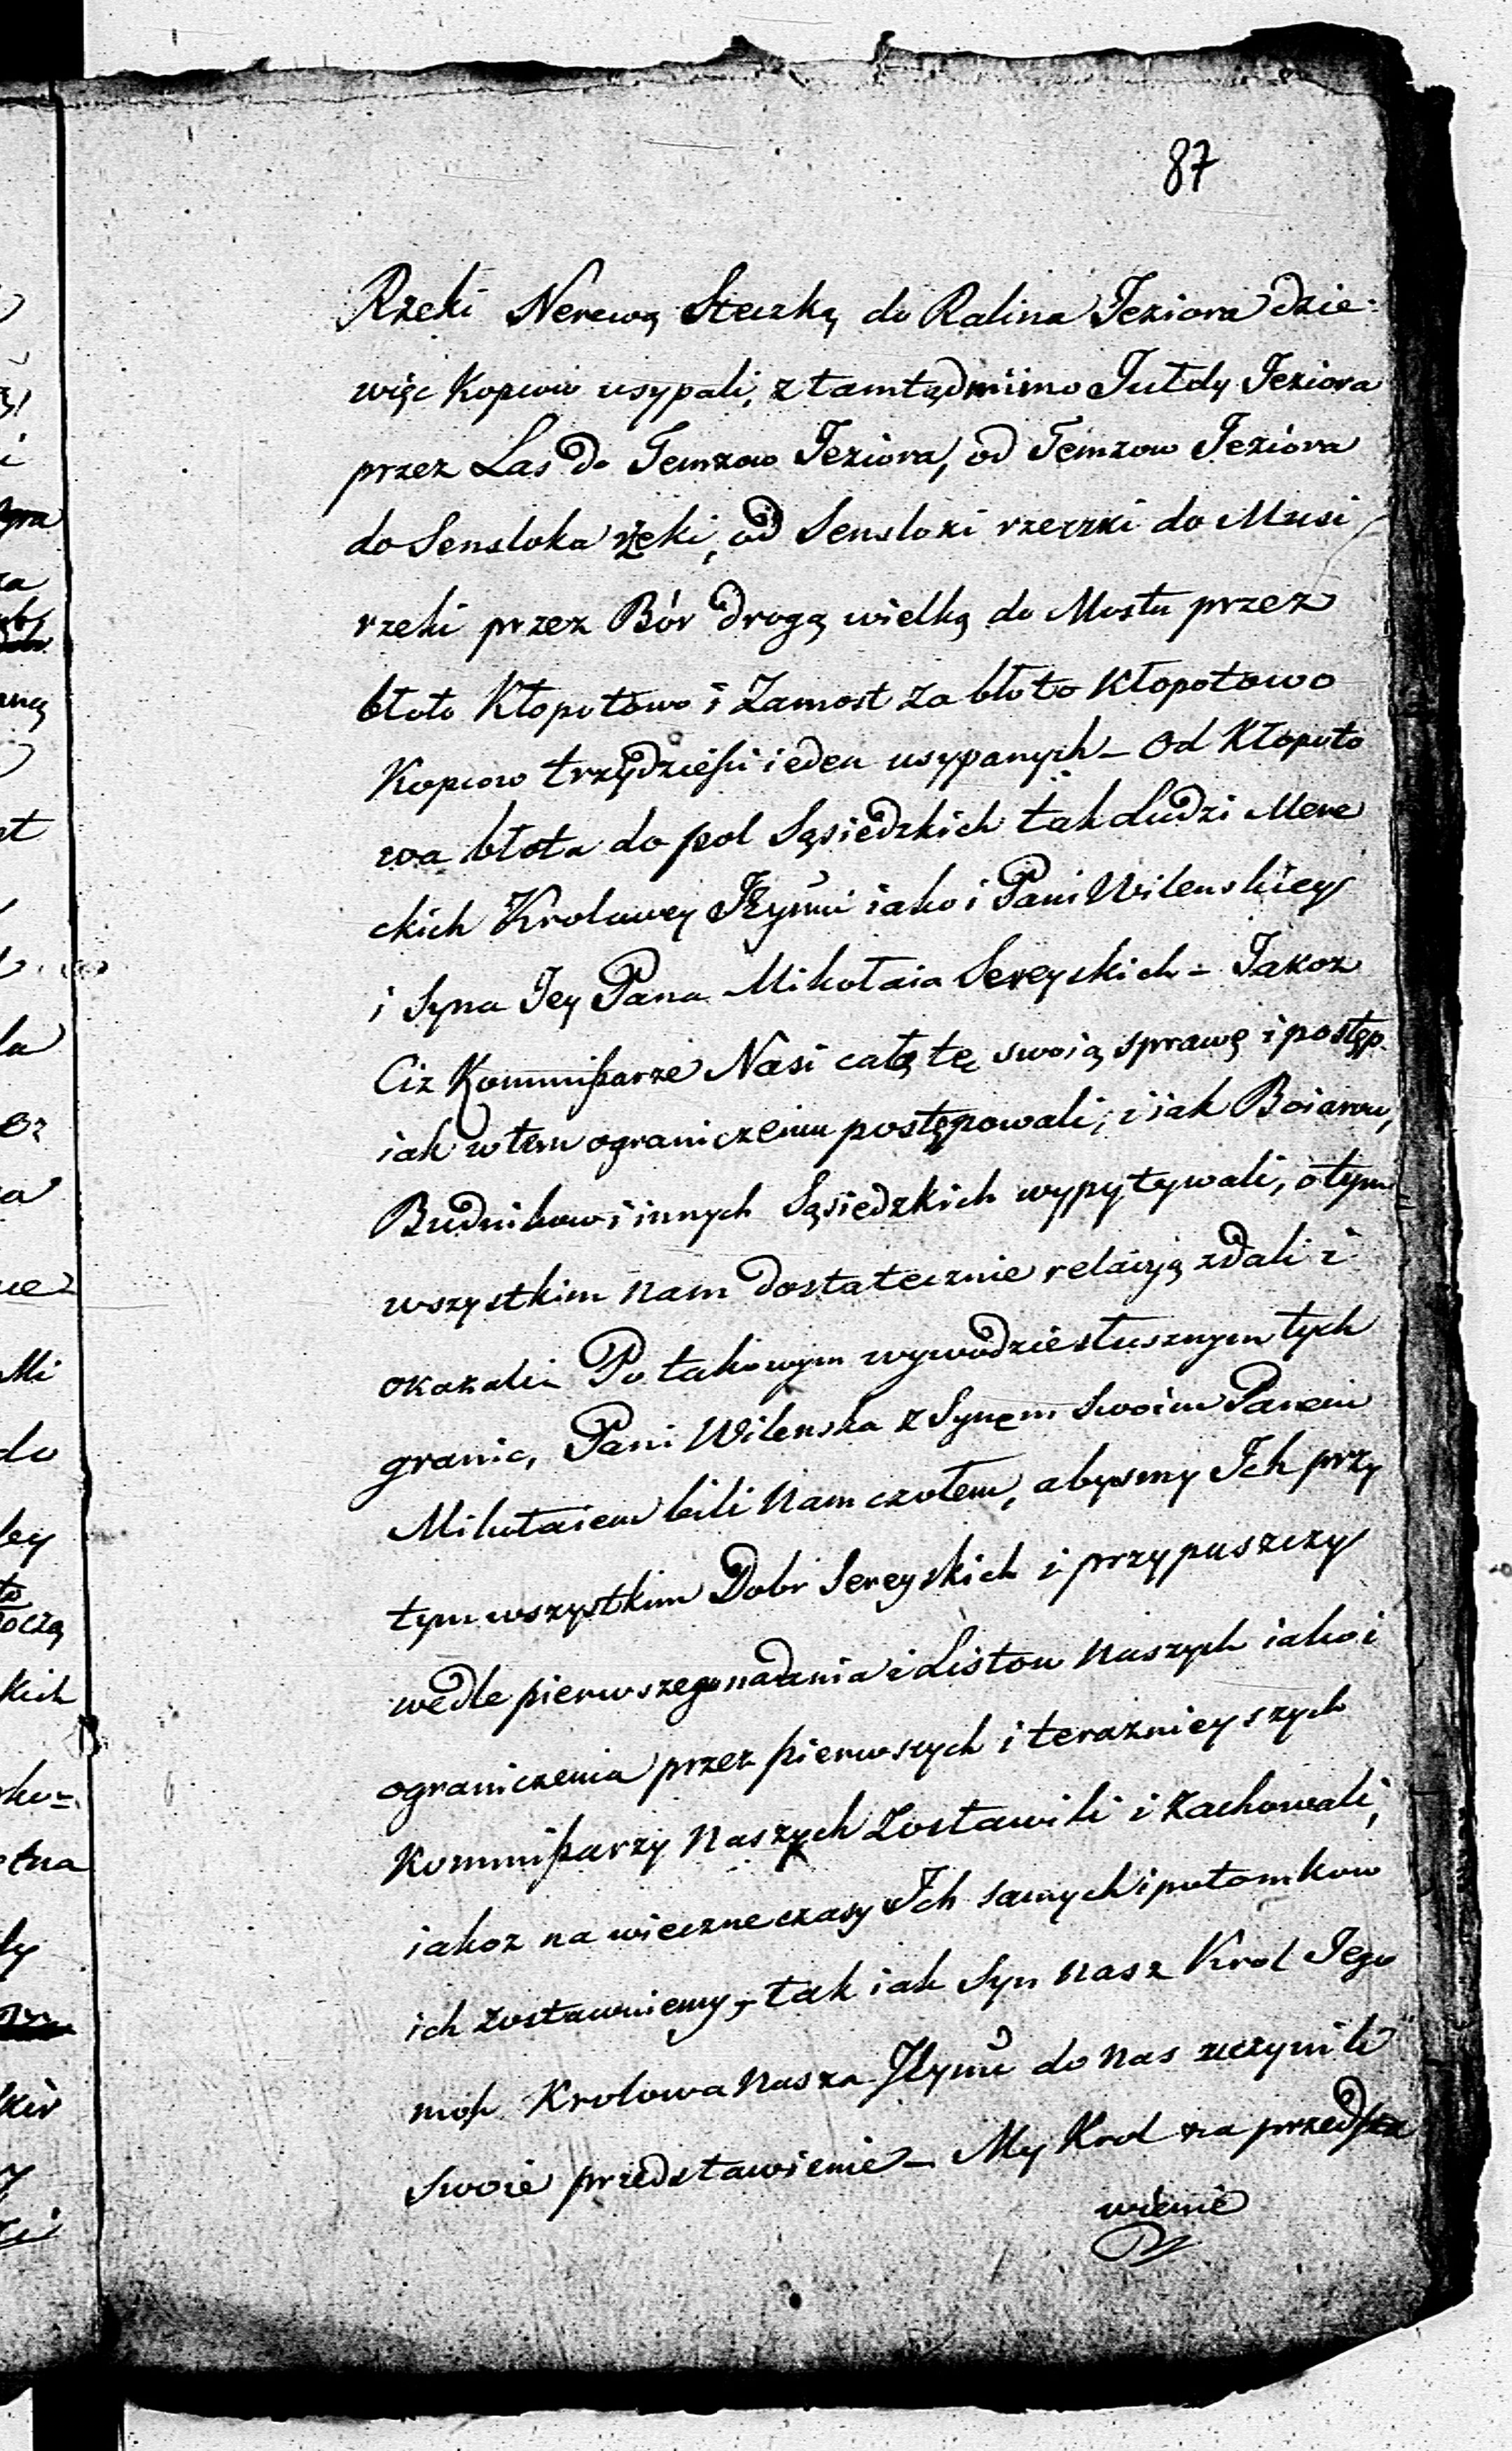 87
Rzeki Nerewą Steczką do Ralina Jeziora dzie-
więc Kopcow usypali, z tamtąd mimo Jutdy Jeziora
przez Las do Temzow Jeziora, od Temzow Jeziora
do Sensloka rzeki, od Sensloki rzeczki do Musi
rzeki przez Bór drogą wielką do Mostu przez
błoto Kłopotowo i Zamost za błoto Kłopotowo
Kopcow trzydzieści ieden usypanych – Od Kłopoto
wa błota do pol Sąsiedzkich tak Ludzi Mere
ckich Krolowey Jeymci iako i Pani Wilenskiey
i Syna Jey Pana Mikołaia Sereyskich – Jakoz
Ciz Kommissarze Nasi całą tę swoią sprawę i postęp
iak w tem ograniczeniu postępowali, i iak Boiarow,
Budnikow i innych Sąsiedzkich wypytywali, o tym
wszystkim nam dostatecznie relacyą zdali i
okazali – Po takowym wywodzie słusznym tych
granic, Pani Wilenska z Synem swoim Panem
Mikołaiem bili Nam czołem, abysmy Ich przy
tym wszystkim Dobr Sereyskich i przypuszczy
wedle pierwszego nadania i Listow Naszych iako i
ograniczenia przez pierwszych i teraznieyszych
Kommissarzy Naszych Zostawili i Zachowali,
iakoz na wieczne czasy Ich samych i potomkow
ich zostawuiemy, tak iak Syn nasz Krol Jego
mość Krolowa nasza Jeymć do nas uczynili
Swoie przedstawienie – My Krol na przedsta
wienie